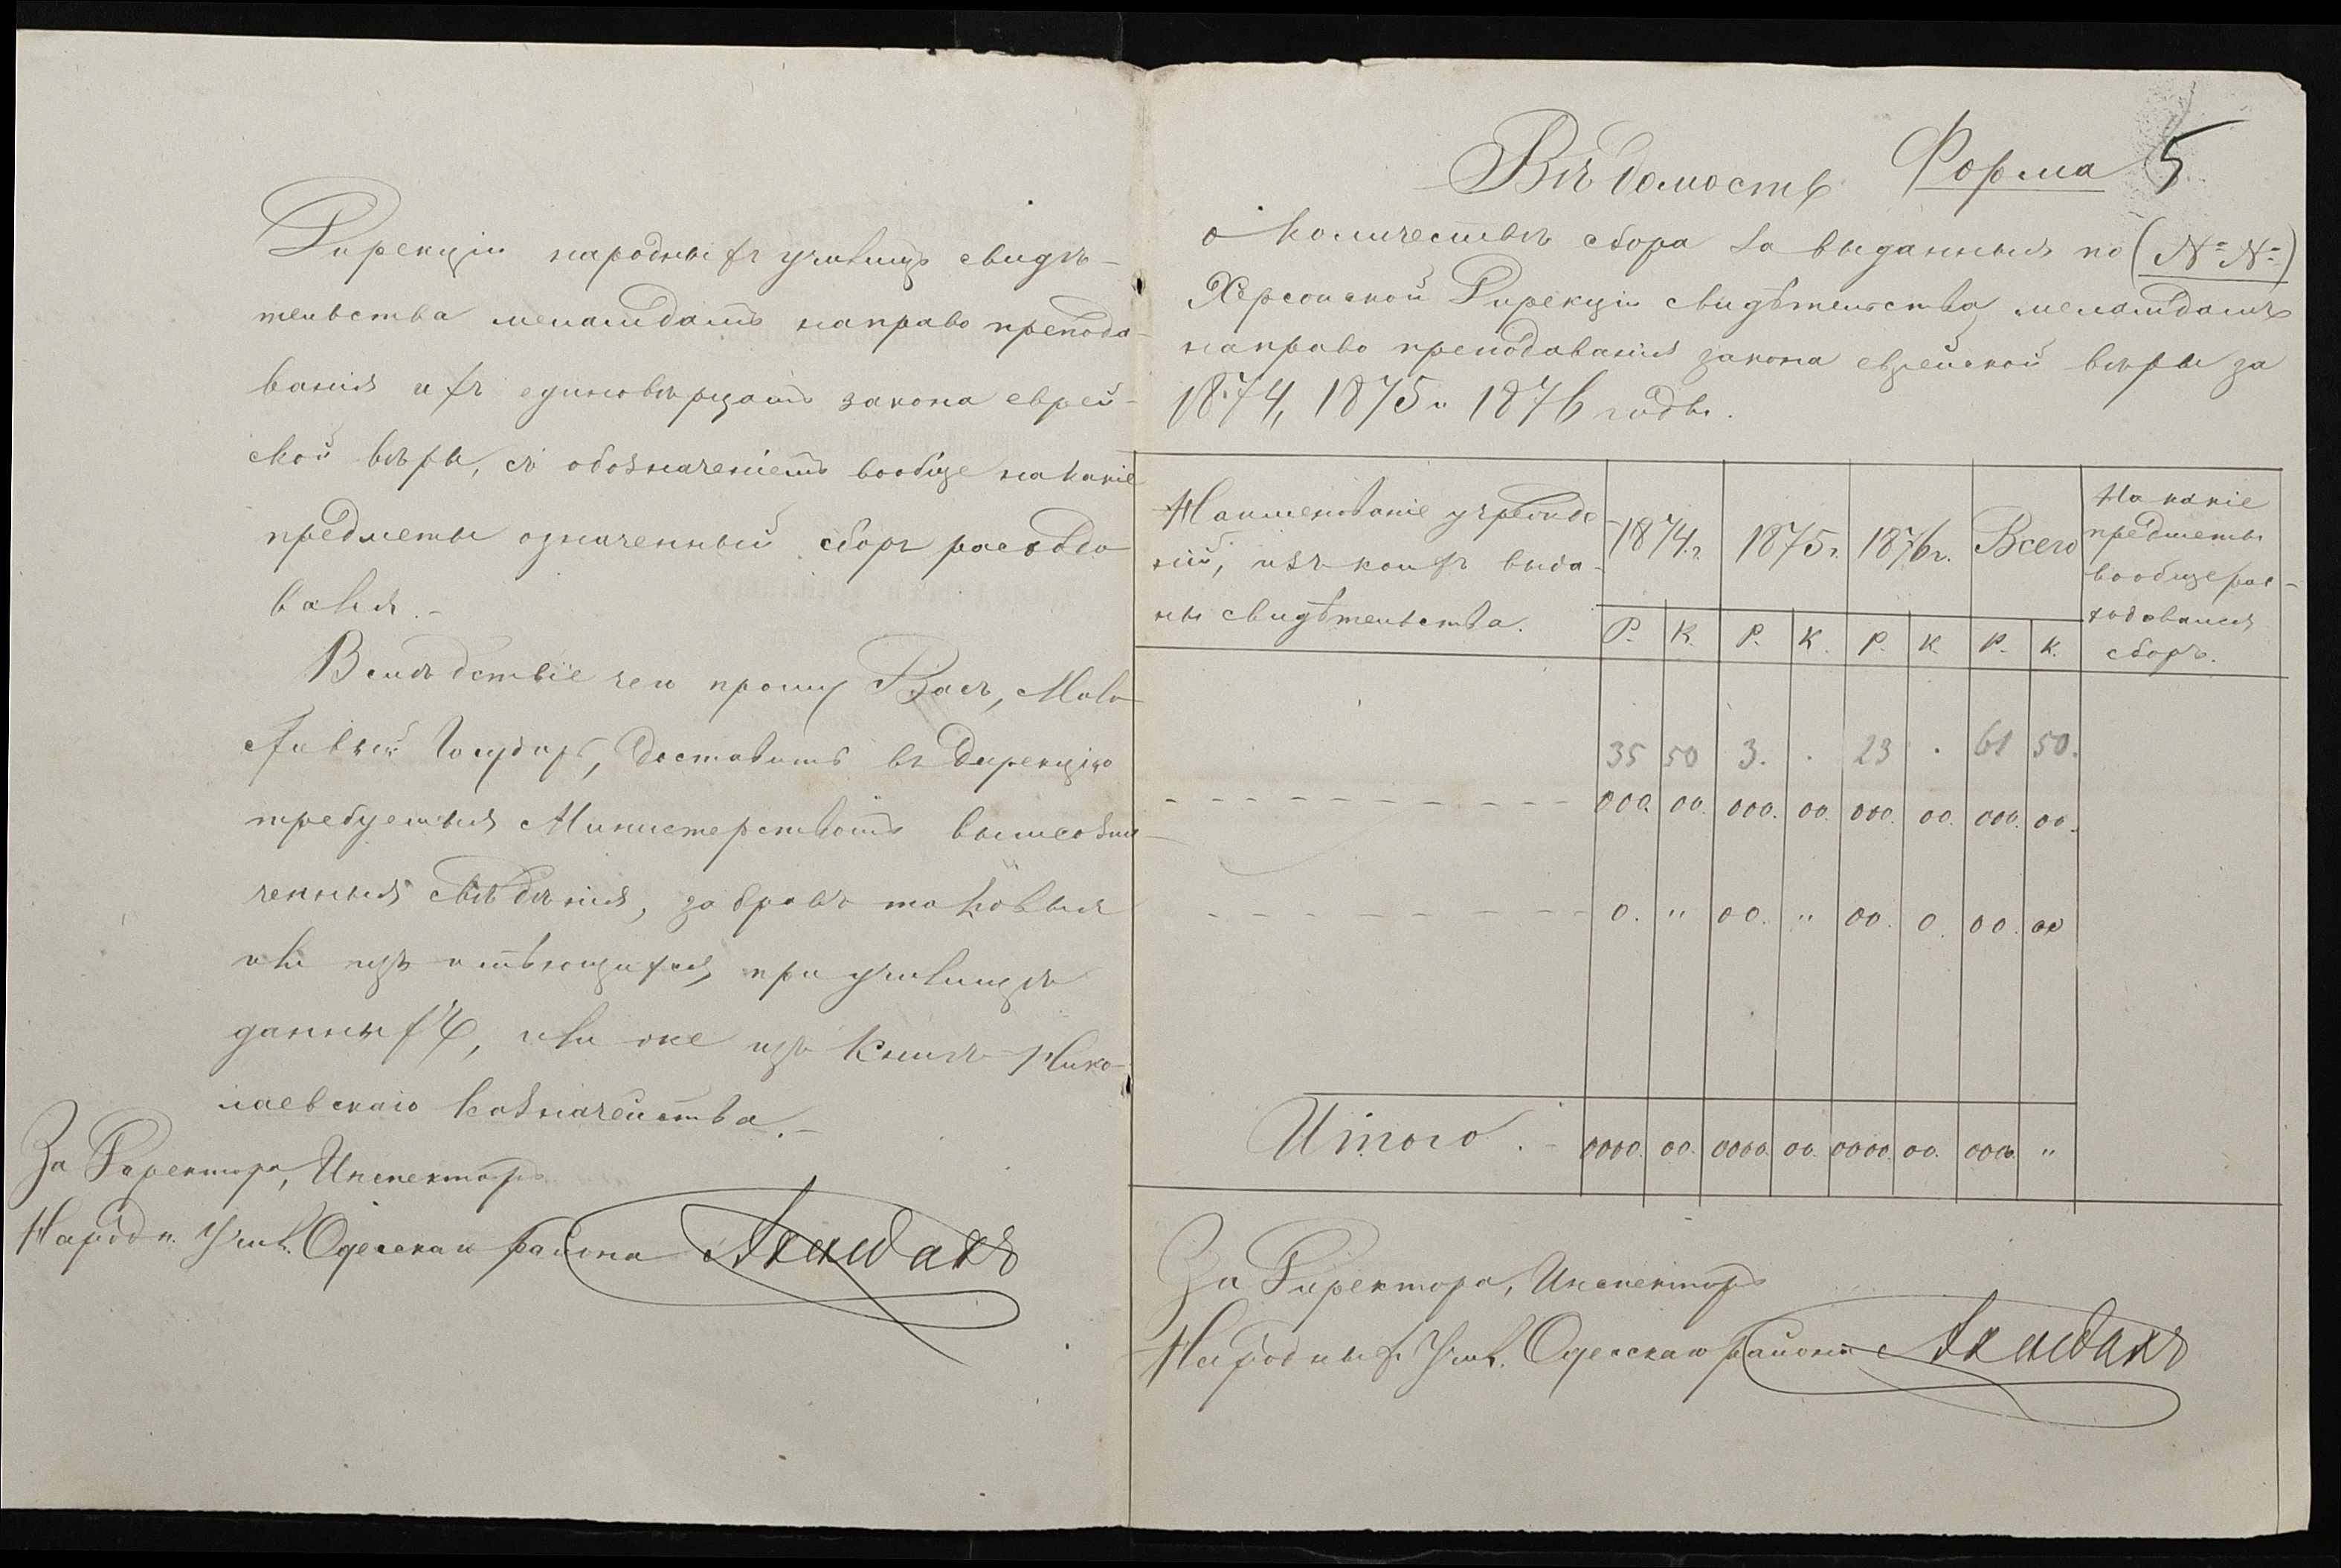 Дирекціи народныхъ училищъ свидѣ-
тельства меламдамъ на право препода-
ванія ихъ единовѣрцамъ закона еврей-
ской вѣры, съ обозначеніемъ вообще на какіе
предметы означенный сборъ расходо
вался.-
Вслѣдствіе чего прошу Васъ, Мило-
стивый Государь, доставить въ Дирекцію
требуемыя Министерствомъ вышеозна-
ченныя свѣдѣнія, забравъ таковыя
или изъ имѣющихся при училищѣ
данныхъ, или же изъ книгъ Нико-
лаевскаго Казначейства.-
За Директора, Инспекторъ
Народн. Учил. Одесскаго района
Вѣдомость Форма 5
о количествѣ сбора за выданныя по (№ №)
Херсонской Дирекціи свидѣтельства меламдамъ
на право преподаванія закона еврейской вѣры за
1874, 1875 и 1876 годы.
Наименованіе учрежде
ній, изъ коихъ выда-
ны свидѣтельства.
1874 г. 1875 г. 1876 г. Всего
На какіе
предметы
вообще рас-
ходовался
сборъ.
Р. К. Р. К. Р. К. Р. К.
35 50 3. . 23 . 61 50.
000. 00. 000. 00. 000. 00. 000. 00.
0. " 00. " 00. 0. 00. 00
Итого. 0000. 00. 0000. 00. 0000. 00. 0000. "
За Директора, Инспекторъ
Народныхъ Учил. Одесскаго района